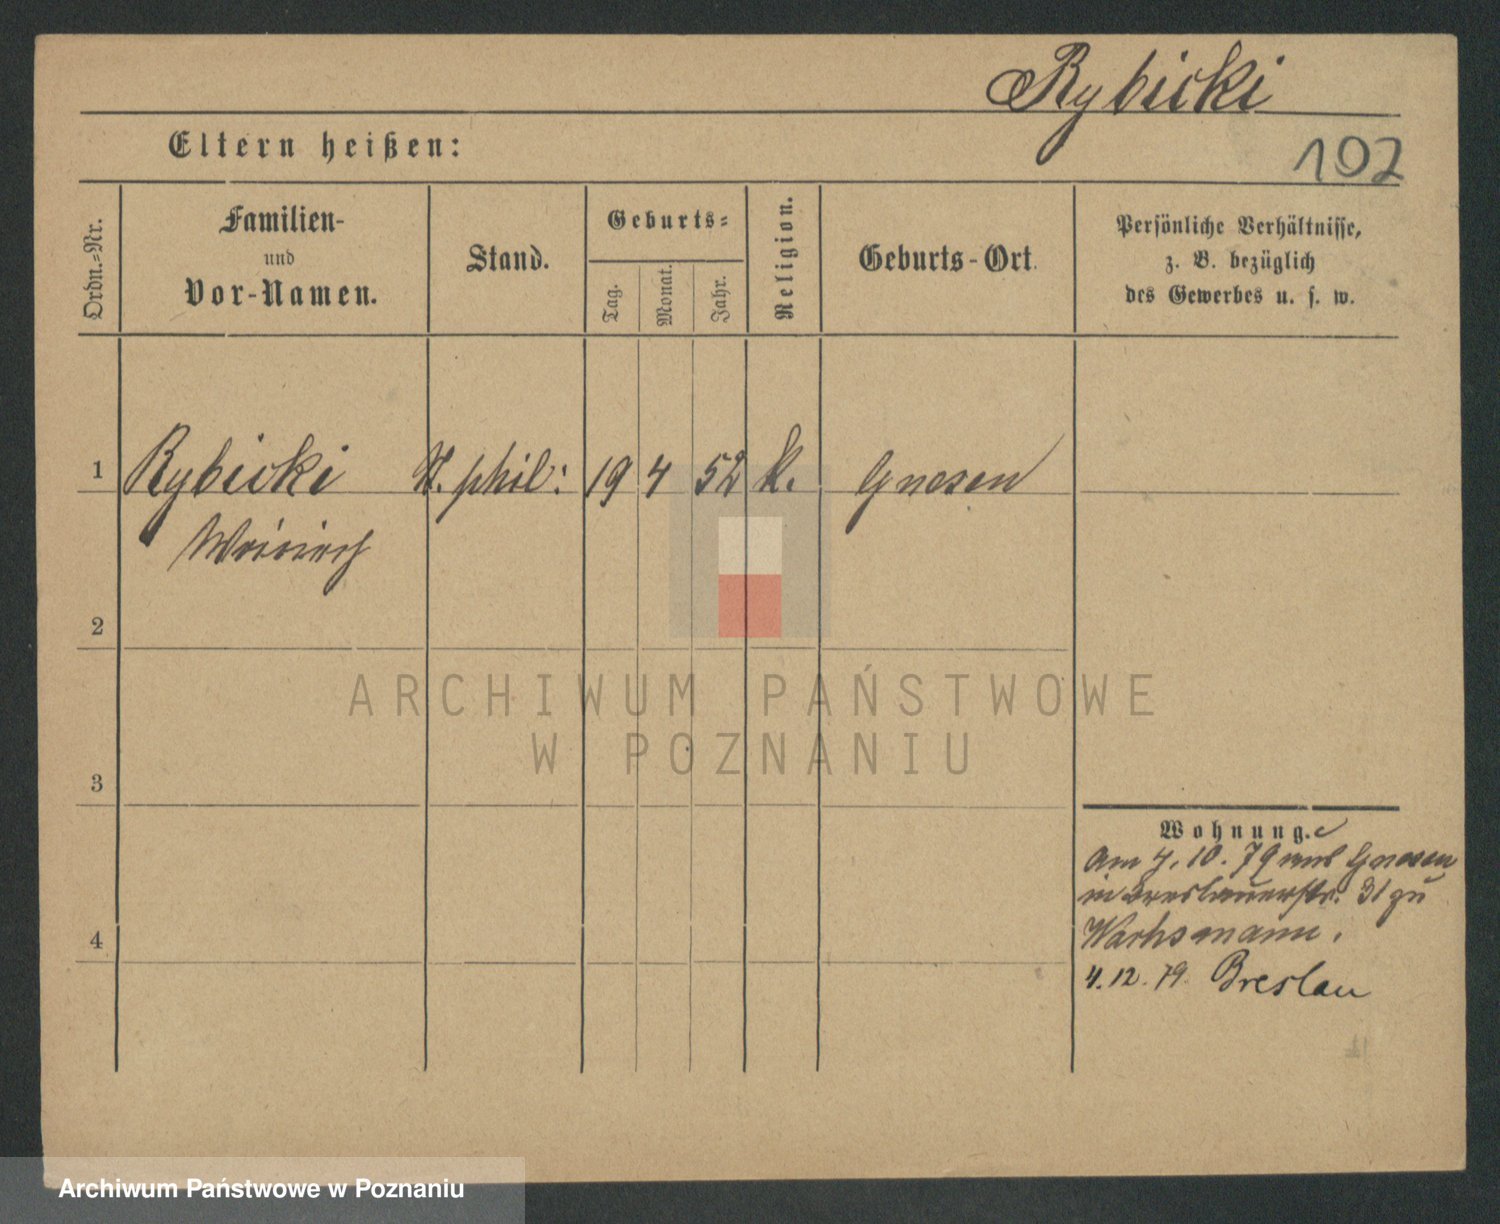 Rybicki
Eltern heißen:
192
Ordn.-Nr.
Familien-
und
Vor-Namen.
Stand.
Geburts-
Tag.
Monat.
Jahr.
Religion.
Geburts-Ort.
Persönliche Verhältnisse,
z. B. bezüglich
des Gewerbes u. s. w.
1 Rybicki phil: 19 4 52 k. Gnesen
2
3
4
Wohnung.
am 4. 10. 79 aus Gnesen
in Breslauerstr. 31 zu
Wachsmann.
4. 12. 79. Breslau
ARCHIWUM PAŃSTWOWE
W POZNANIU
Archiwum Państwowe w Poznaniu